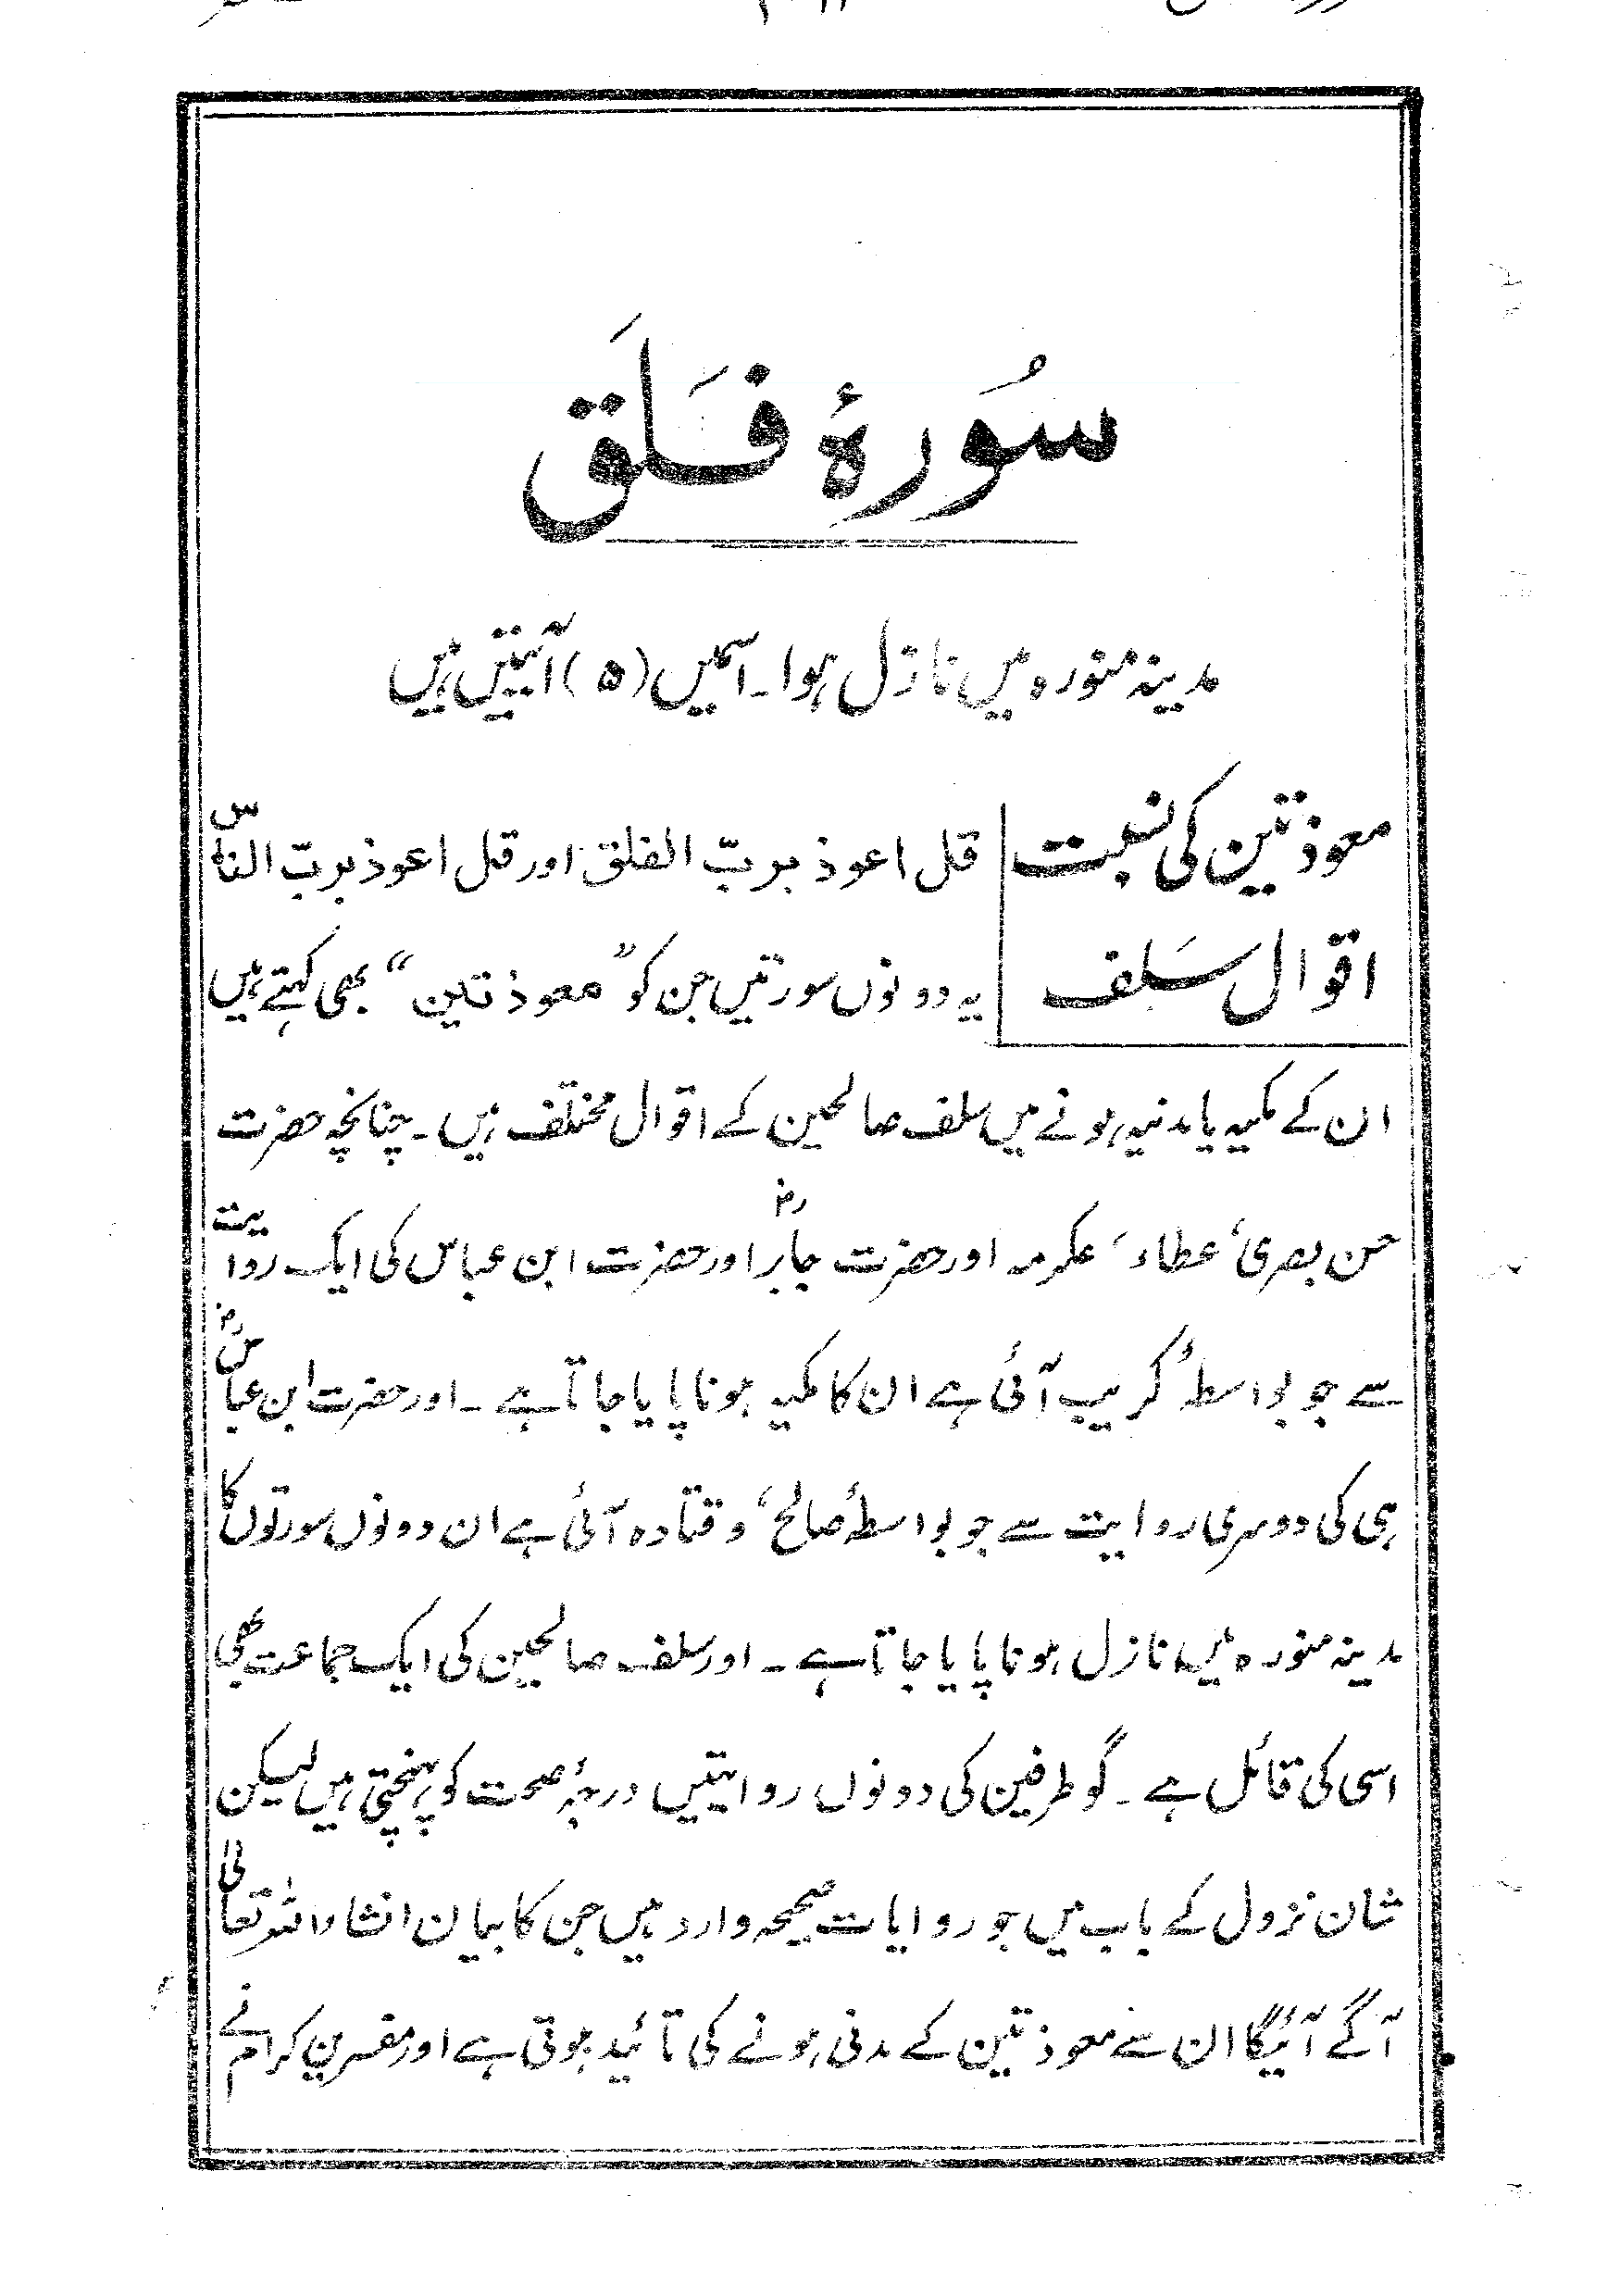 سُورۂ فَلَق
مدینہ منورہ میں نازل ہوا۔ اسمیں (۵) آئیتیں ہیں
معوذتین کی نسبت
اقوال سَلف
قل اعوذ بربّ الفلق اور قل اعوذ بربّ الناس
یہ دونوں سورتیں جن کو ”معوذتین“ بھی کہتے ہیں
ان کے مکیہ یا مدنیہ ہونے میں سلف صالحین کے اقوال مختلف ہیں۔ چنانچہ حضرت
حسن بصری، عطاء، عکرمہ اور حضرت جابرؓ اور حضرت ابن عباس کی ایک روایت
سے جو بواسطہٗ کریب آئی ہے ان کا مکیہ ہونا پایا جاتا ہے۔ اور حضرت ابن عباسؓ
ہی کی دوسری روایت سے جو بواسطہٗ صالح، و قتادہ آئی ہے ان دونوں سورتوں کا
مدینہ منورہ میں نازل ہونا پایا جاتا ہے۔ اور سلف صالحین کی ایک جماعت بھی
اسی کی قائل ہے۔ گو طرفین کی دونوں روایتیں درجۂ صحت کو پہنچتی ہیں لیکن
شان نزول کے باب میں جو روایات صحیحہ وارد ہیں جن کا بیان انشاء اللہ تعالیٰ
آگے آئیگا ان سے معوذتین کے مدنی ہونے کی تائید ہوتی ہے اور مفسرین کرام نے